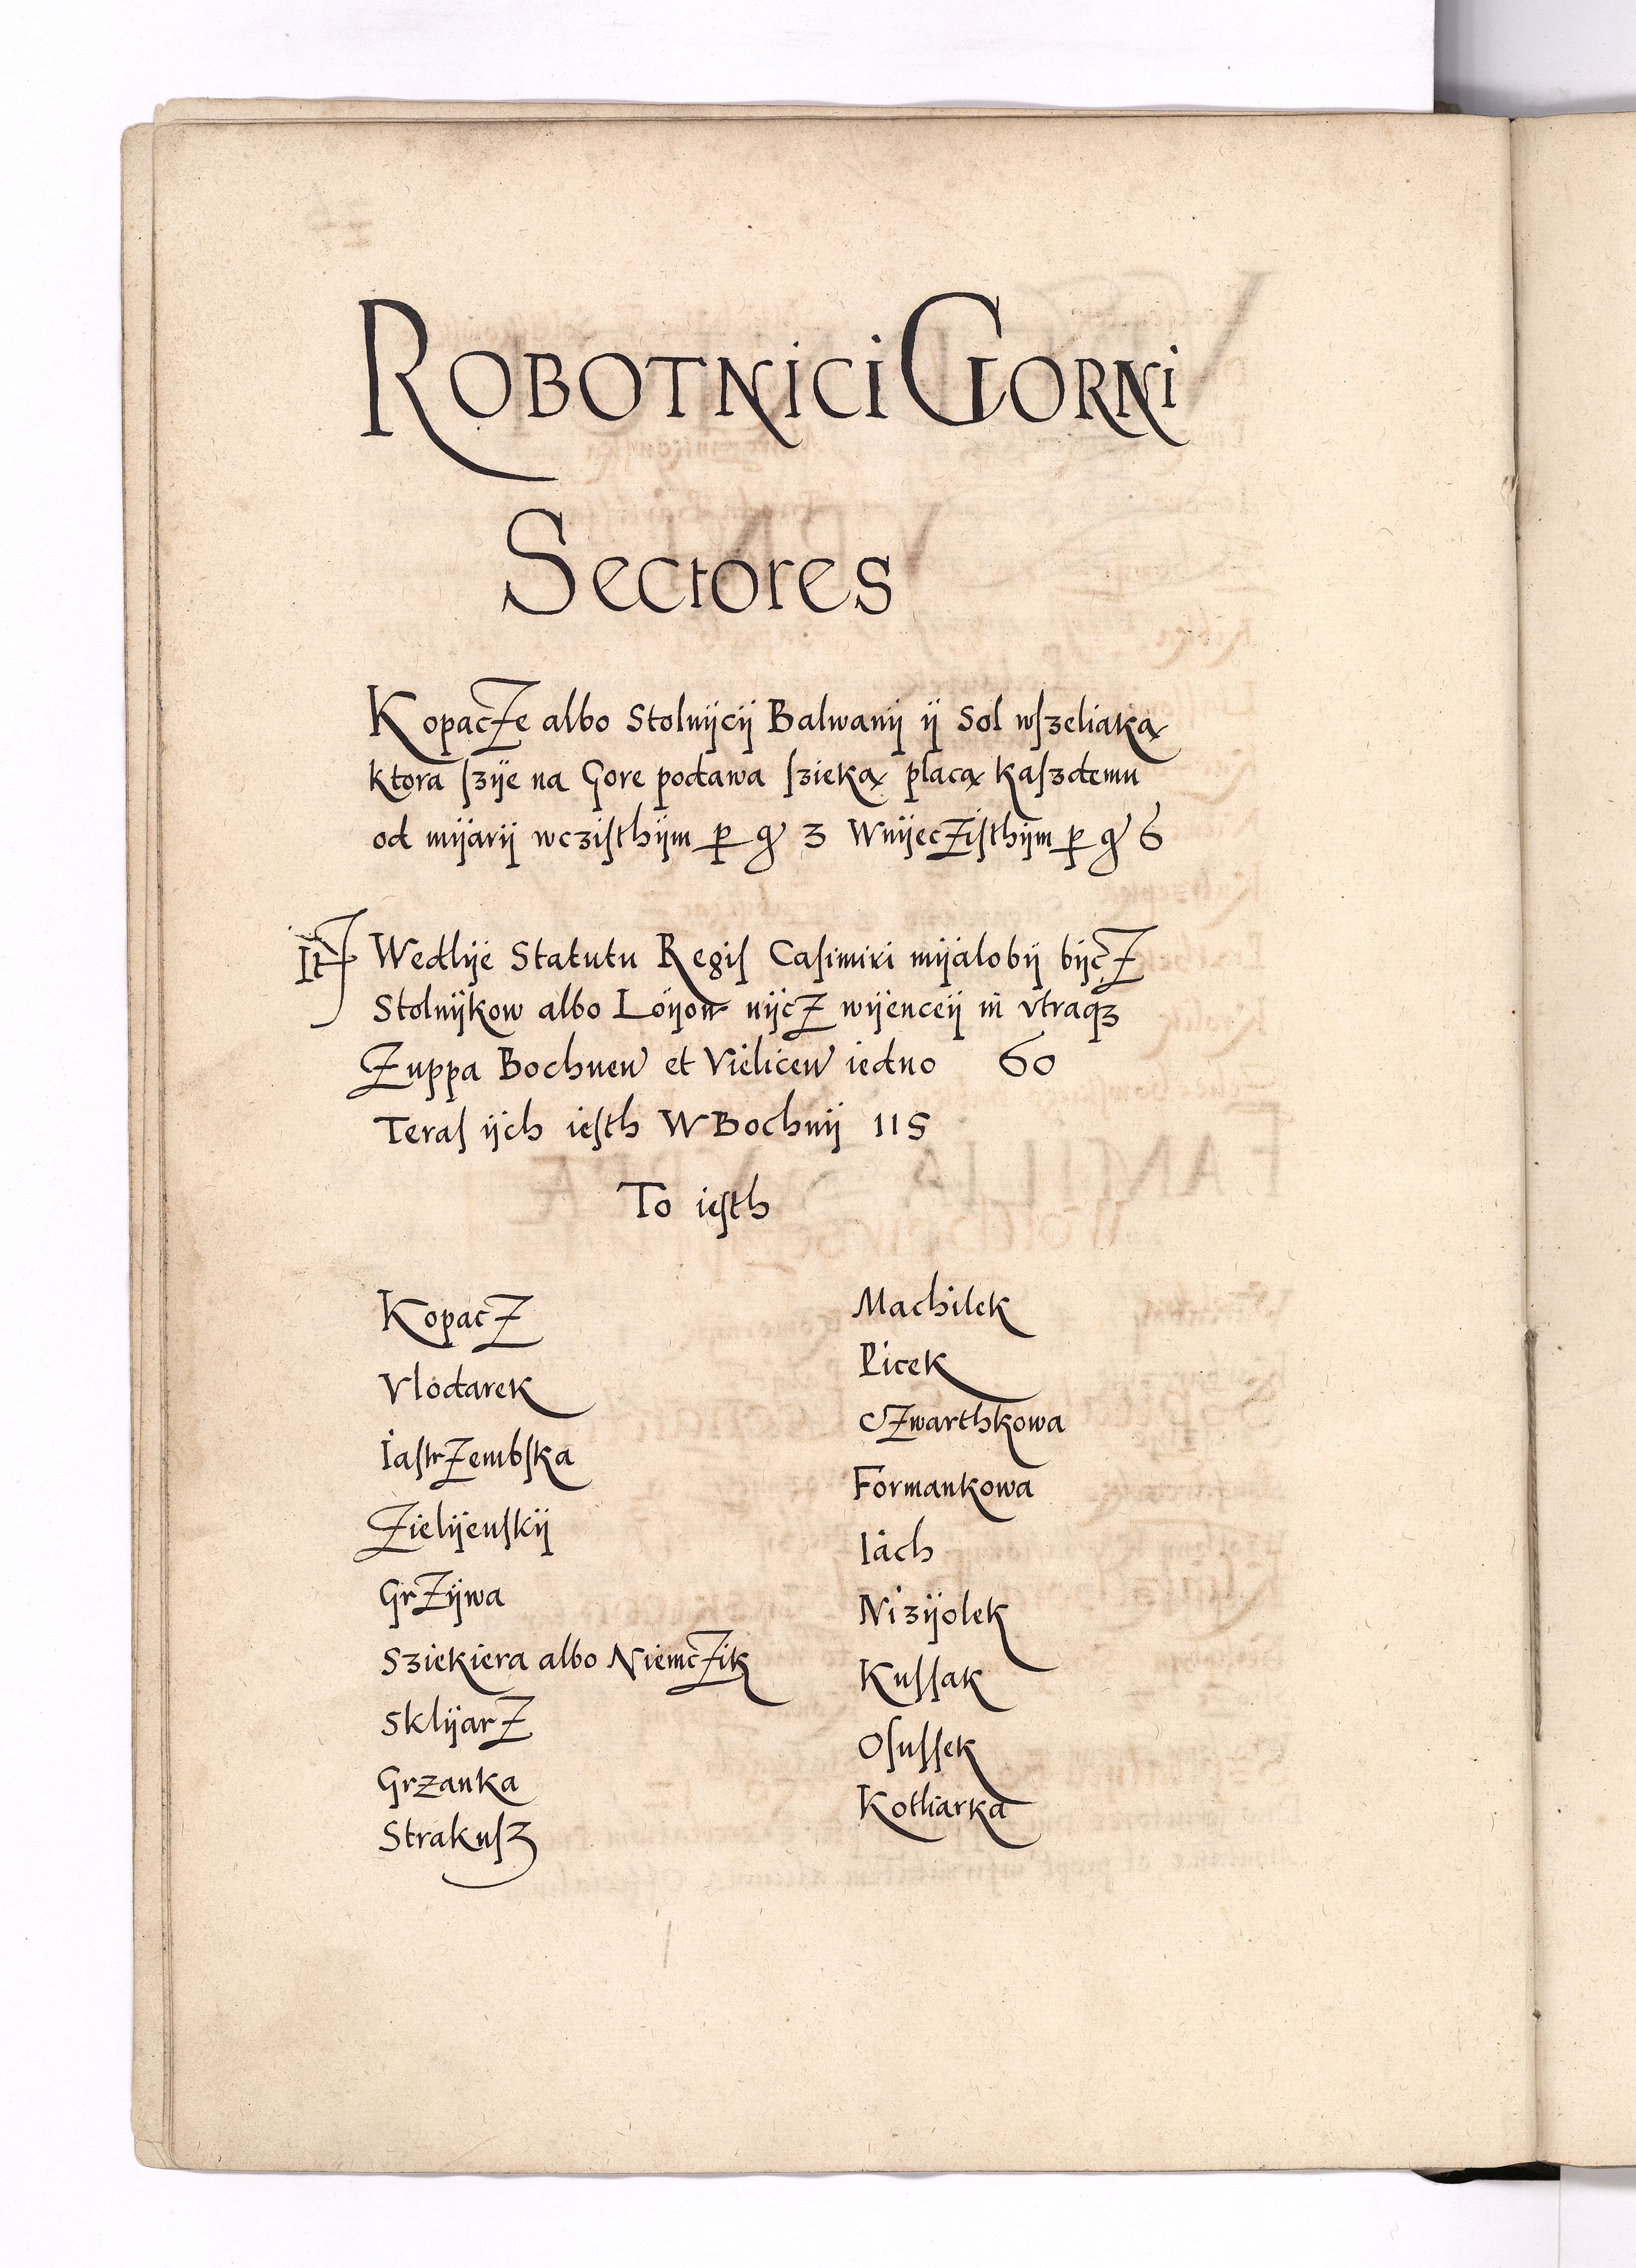 ROBOTNICI GORNI
Sectores
KopacZe albo Stolnijcij Balwanij ij Sol wſzeliaką
ktora ſzije na Gore podawa ſzieką placą kaſzdemu
od mijarij wcziſthijm ꝑ gͬ 3 WnijecZiſthijm ꝑ gͬ 6
It Wedlije Statutu Regiſ Caſimiri mijalobij bijcZ
Stolnijkow albo Loijow nijcZ wijenceij in vtraqꝫ
Zuppa Bochnen et Vielicen iedno 60
Teraſ ijch ieſth W Bochnij 115
To ieſth
KopacZ
Vlodarek
IaſtrZembſka
Zielijenſkij
GrZijwa
Sziekiera albo NiemcZik
SklijarZ
Grzanka
Strakuſz
Machilek
Picek
CZwarthkowa
Formankowa
Iach
Nizijolek
Kuſſak
Oſuſſek
Kotliarka